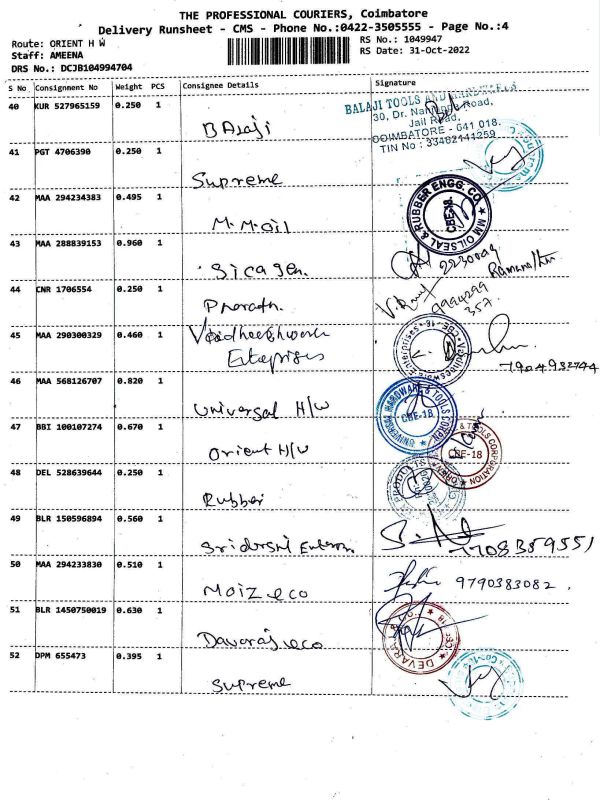 THE PROFESSIONAL COURIERS, Coimbatore
Delivery Runsheet - CMS - Phone No.:0422-3505555 - Page No.:4
Route: ORIENT H W
RS No.: 1049947
Staff: AMEENA
RS Date: 31-Oct-2022
DRS No.: DCJB104994704
S No Consignment No Weight PCS Consignee Details Signature
40 KUR 527965159 0.250 1 BAlaji
BALAJI TOOLS AND
30, Dr. Road,
Jail Road,
COIMBATORE - 641 018.
TIN No : 33462141259
41 PGT 4706390 0.250 1 Supreme
42 MAA 294234383 0.495 1 M.M.oil
MM OILSEAL & RUBBER ENGG. CO
CBE-18.
43 MAA 288839153 0.960 1 Sicagen
44 CNR 1706554 0.250 1
9994299
357
45 MAA 290300329 0.460 1
7904932744
46 MAA 568126707 0.820 1 Universal H/W
UNIVERSAL HARDWARE & TOOLS
CBE-18
47 BBI 100107274 0.670 1 Orient H/W
& TOOLS CORPORATION
CBE-18
48 DEL 528639644 0.250 1 Rubber
49 BLR 150596894 0.560 1
7708359551
50 MAA 294233830 0.510 1 Moiz eco
9790383082
51 BLR 1450750019 0.630 1 Davaraj eco
52 DPM 655473 0.395 1 Supreme